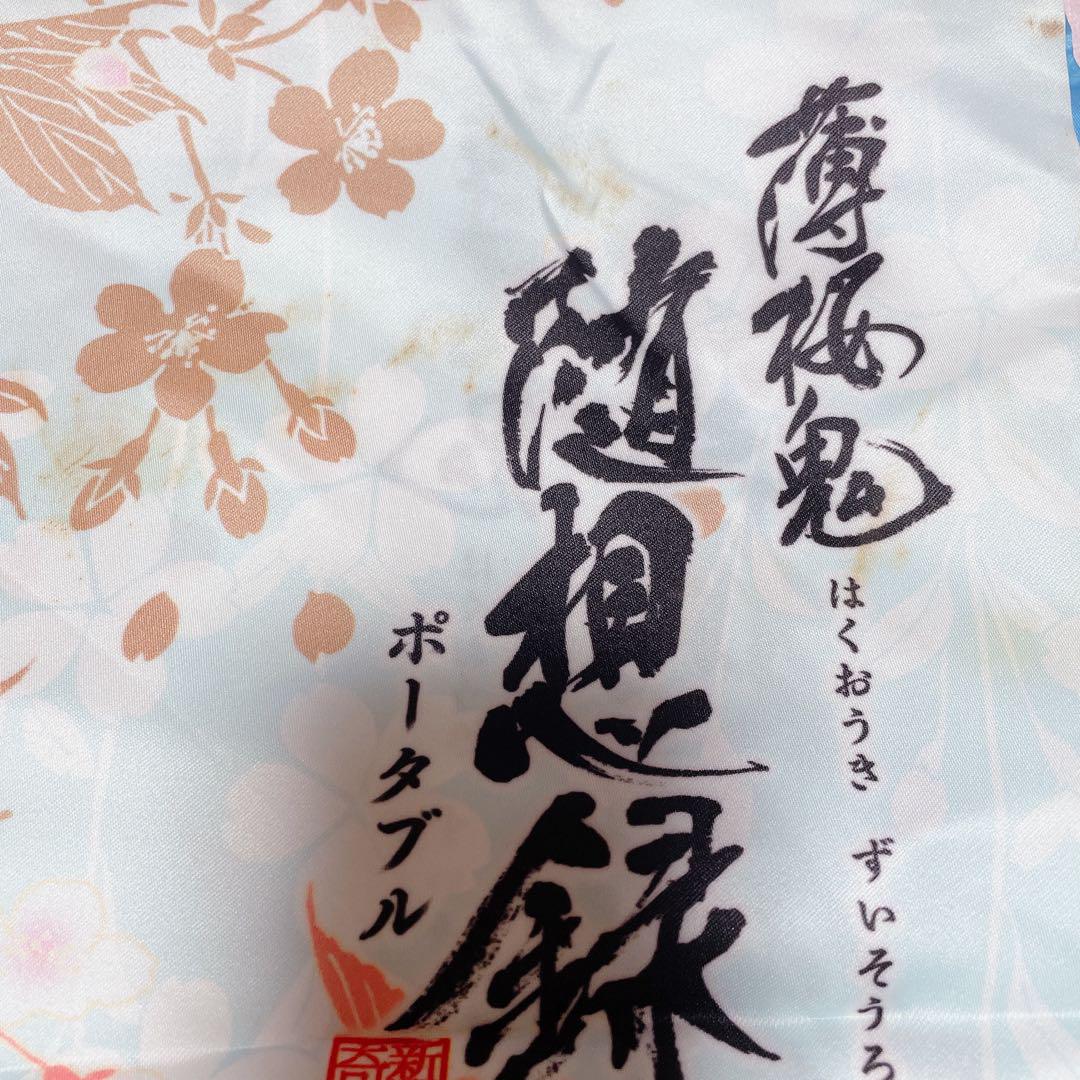 薄桜鬼
はくおうき ずいそうろ
随想録
ポータブル
新
奇